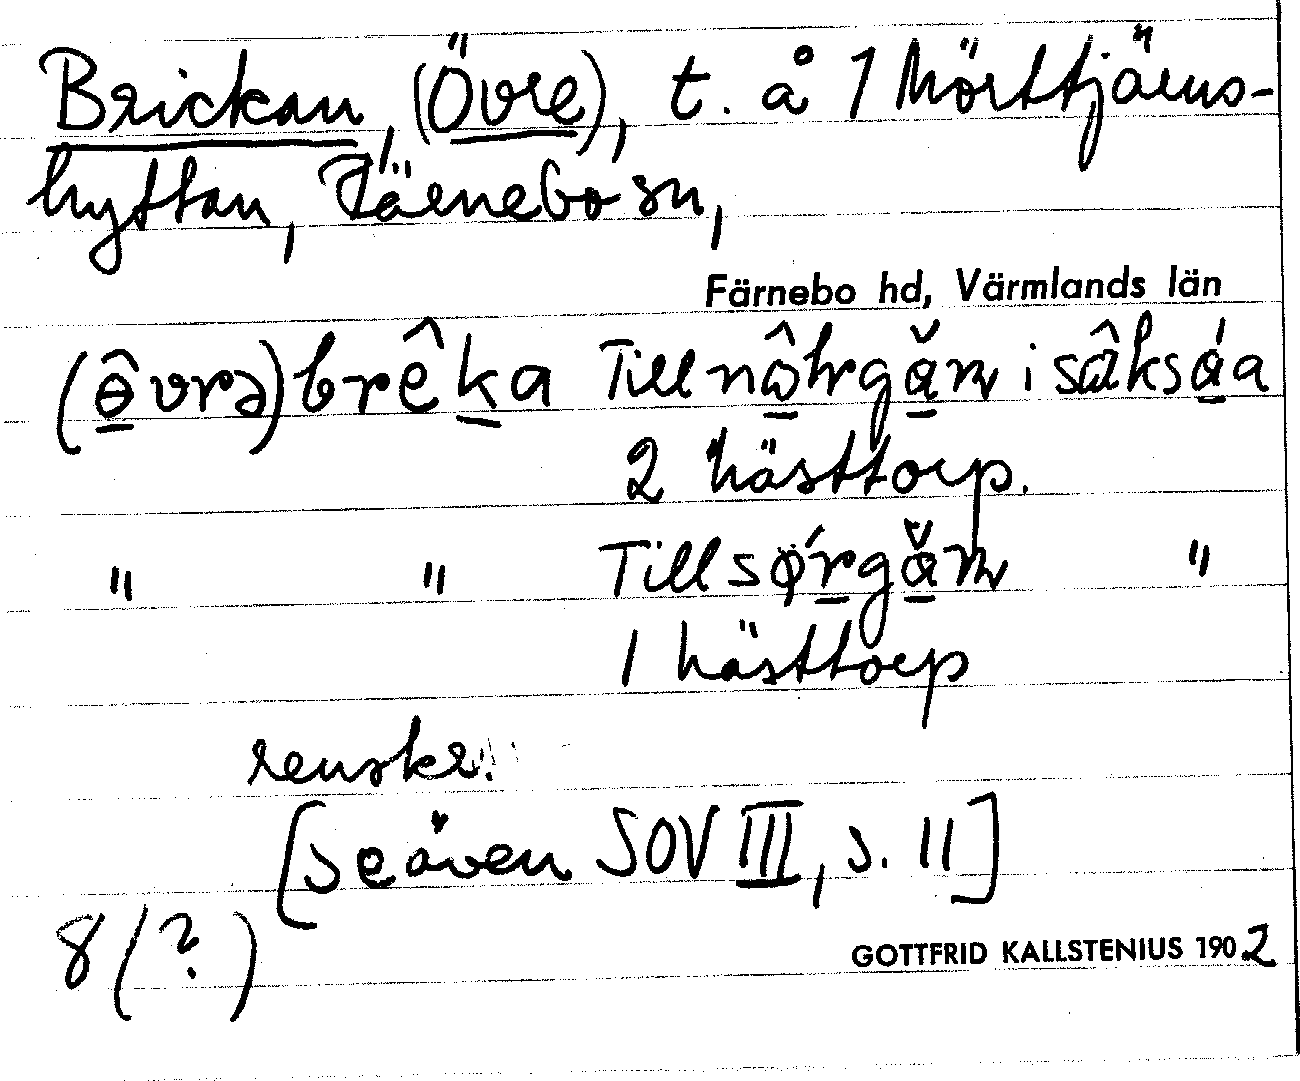 Brickan, (Övre), t. å 1 Mörttjärns-
hyttan, Färnebo sn,
Färnebo hd, Värmlands län
(ɵ̂vrə) brêka Till nôlrgăɳ i sâksáa
2 hästtorp.
" " Till sǿrgăɳ "
1 hästtorp
renskr.
[se även SOV III, s. 11]
8 (?)
GOTTFRID KALLSTENIUS 1902